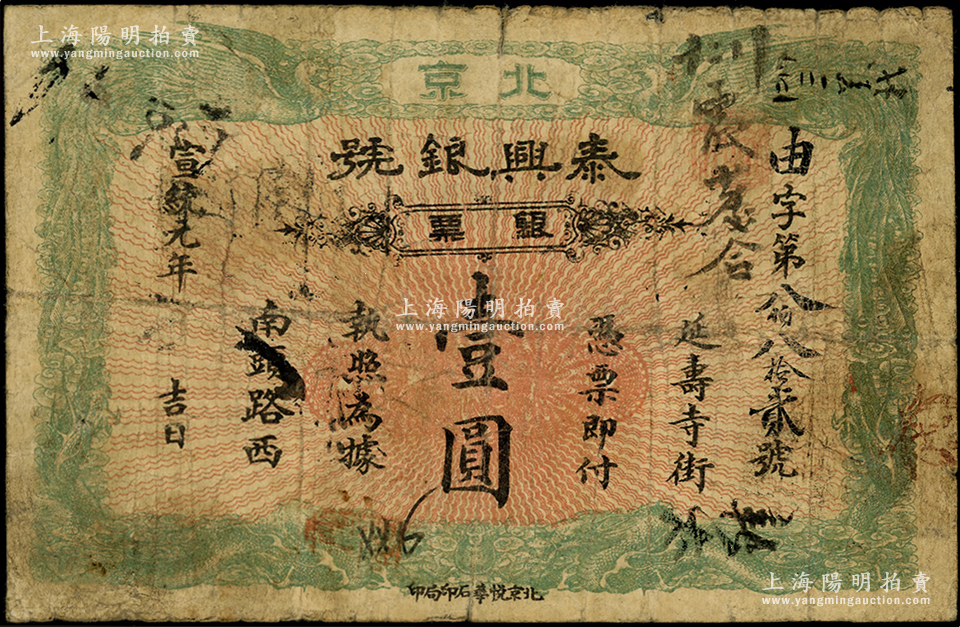 上海陽明拍賣
www.yangmingauction.com
北京
泰興銀號
銀票
由字第八佰八拾貳號
延壽寺街
憑票即付
壹圓
執照為據
南頭路西
宣統元年
吉日
上海陽明拍賣
www.yangmingauction.com
上海陽明拍賣
www.yangmingauction.com
北京悅華石印局印